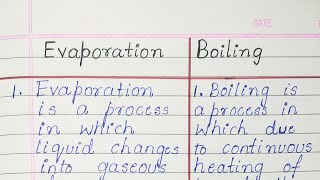 DATE
Evaporation
Boiling
1. Evaporation
is a process
in which
liquid changes
into gaseous
1. Boiling is
a process in
which due
to continuous
heating of